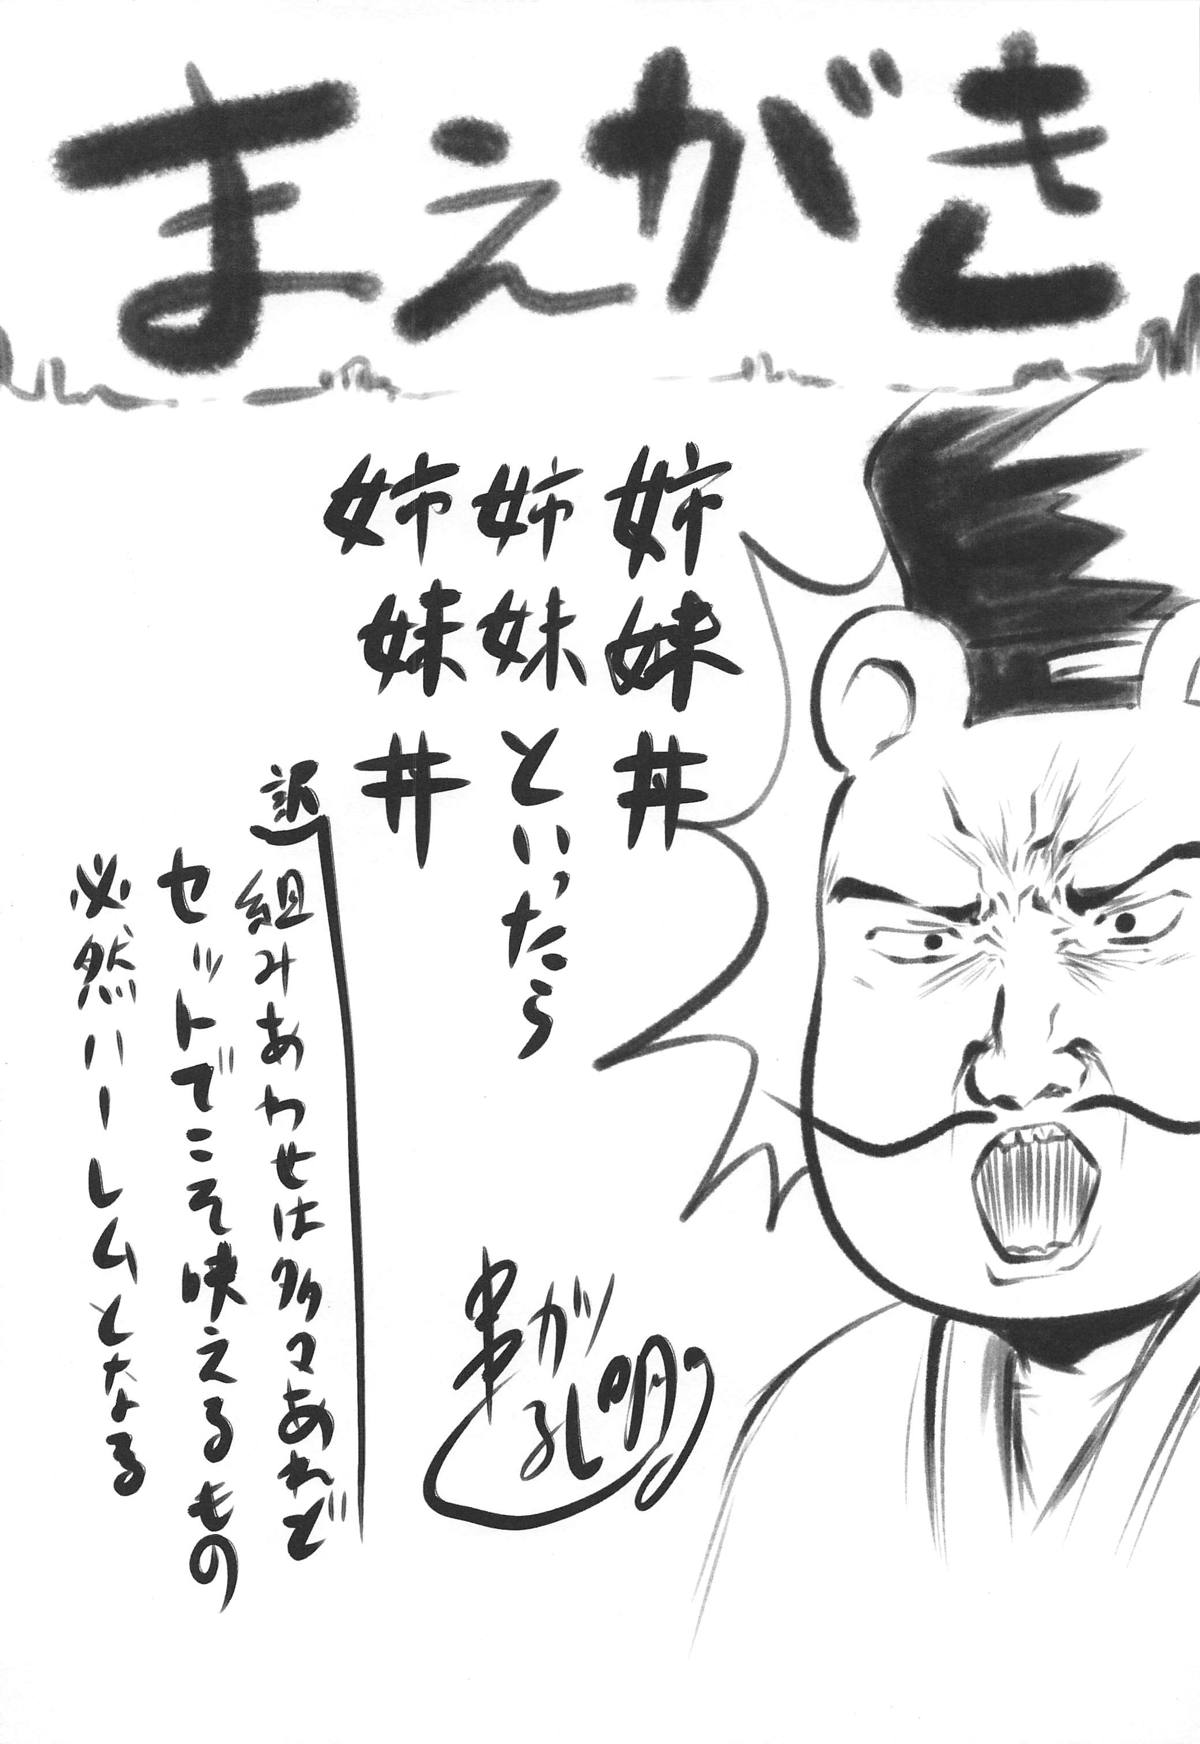 まえがき
姉妹丼
姉妹といったら
姉妹丼
訳
組みあわせは多々あれど
セットでこそ映えるもの
必然ハーレムとなる
串が孔明